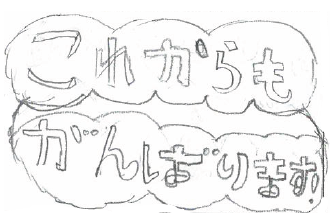 これからも
がんばります。